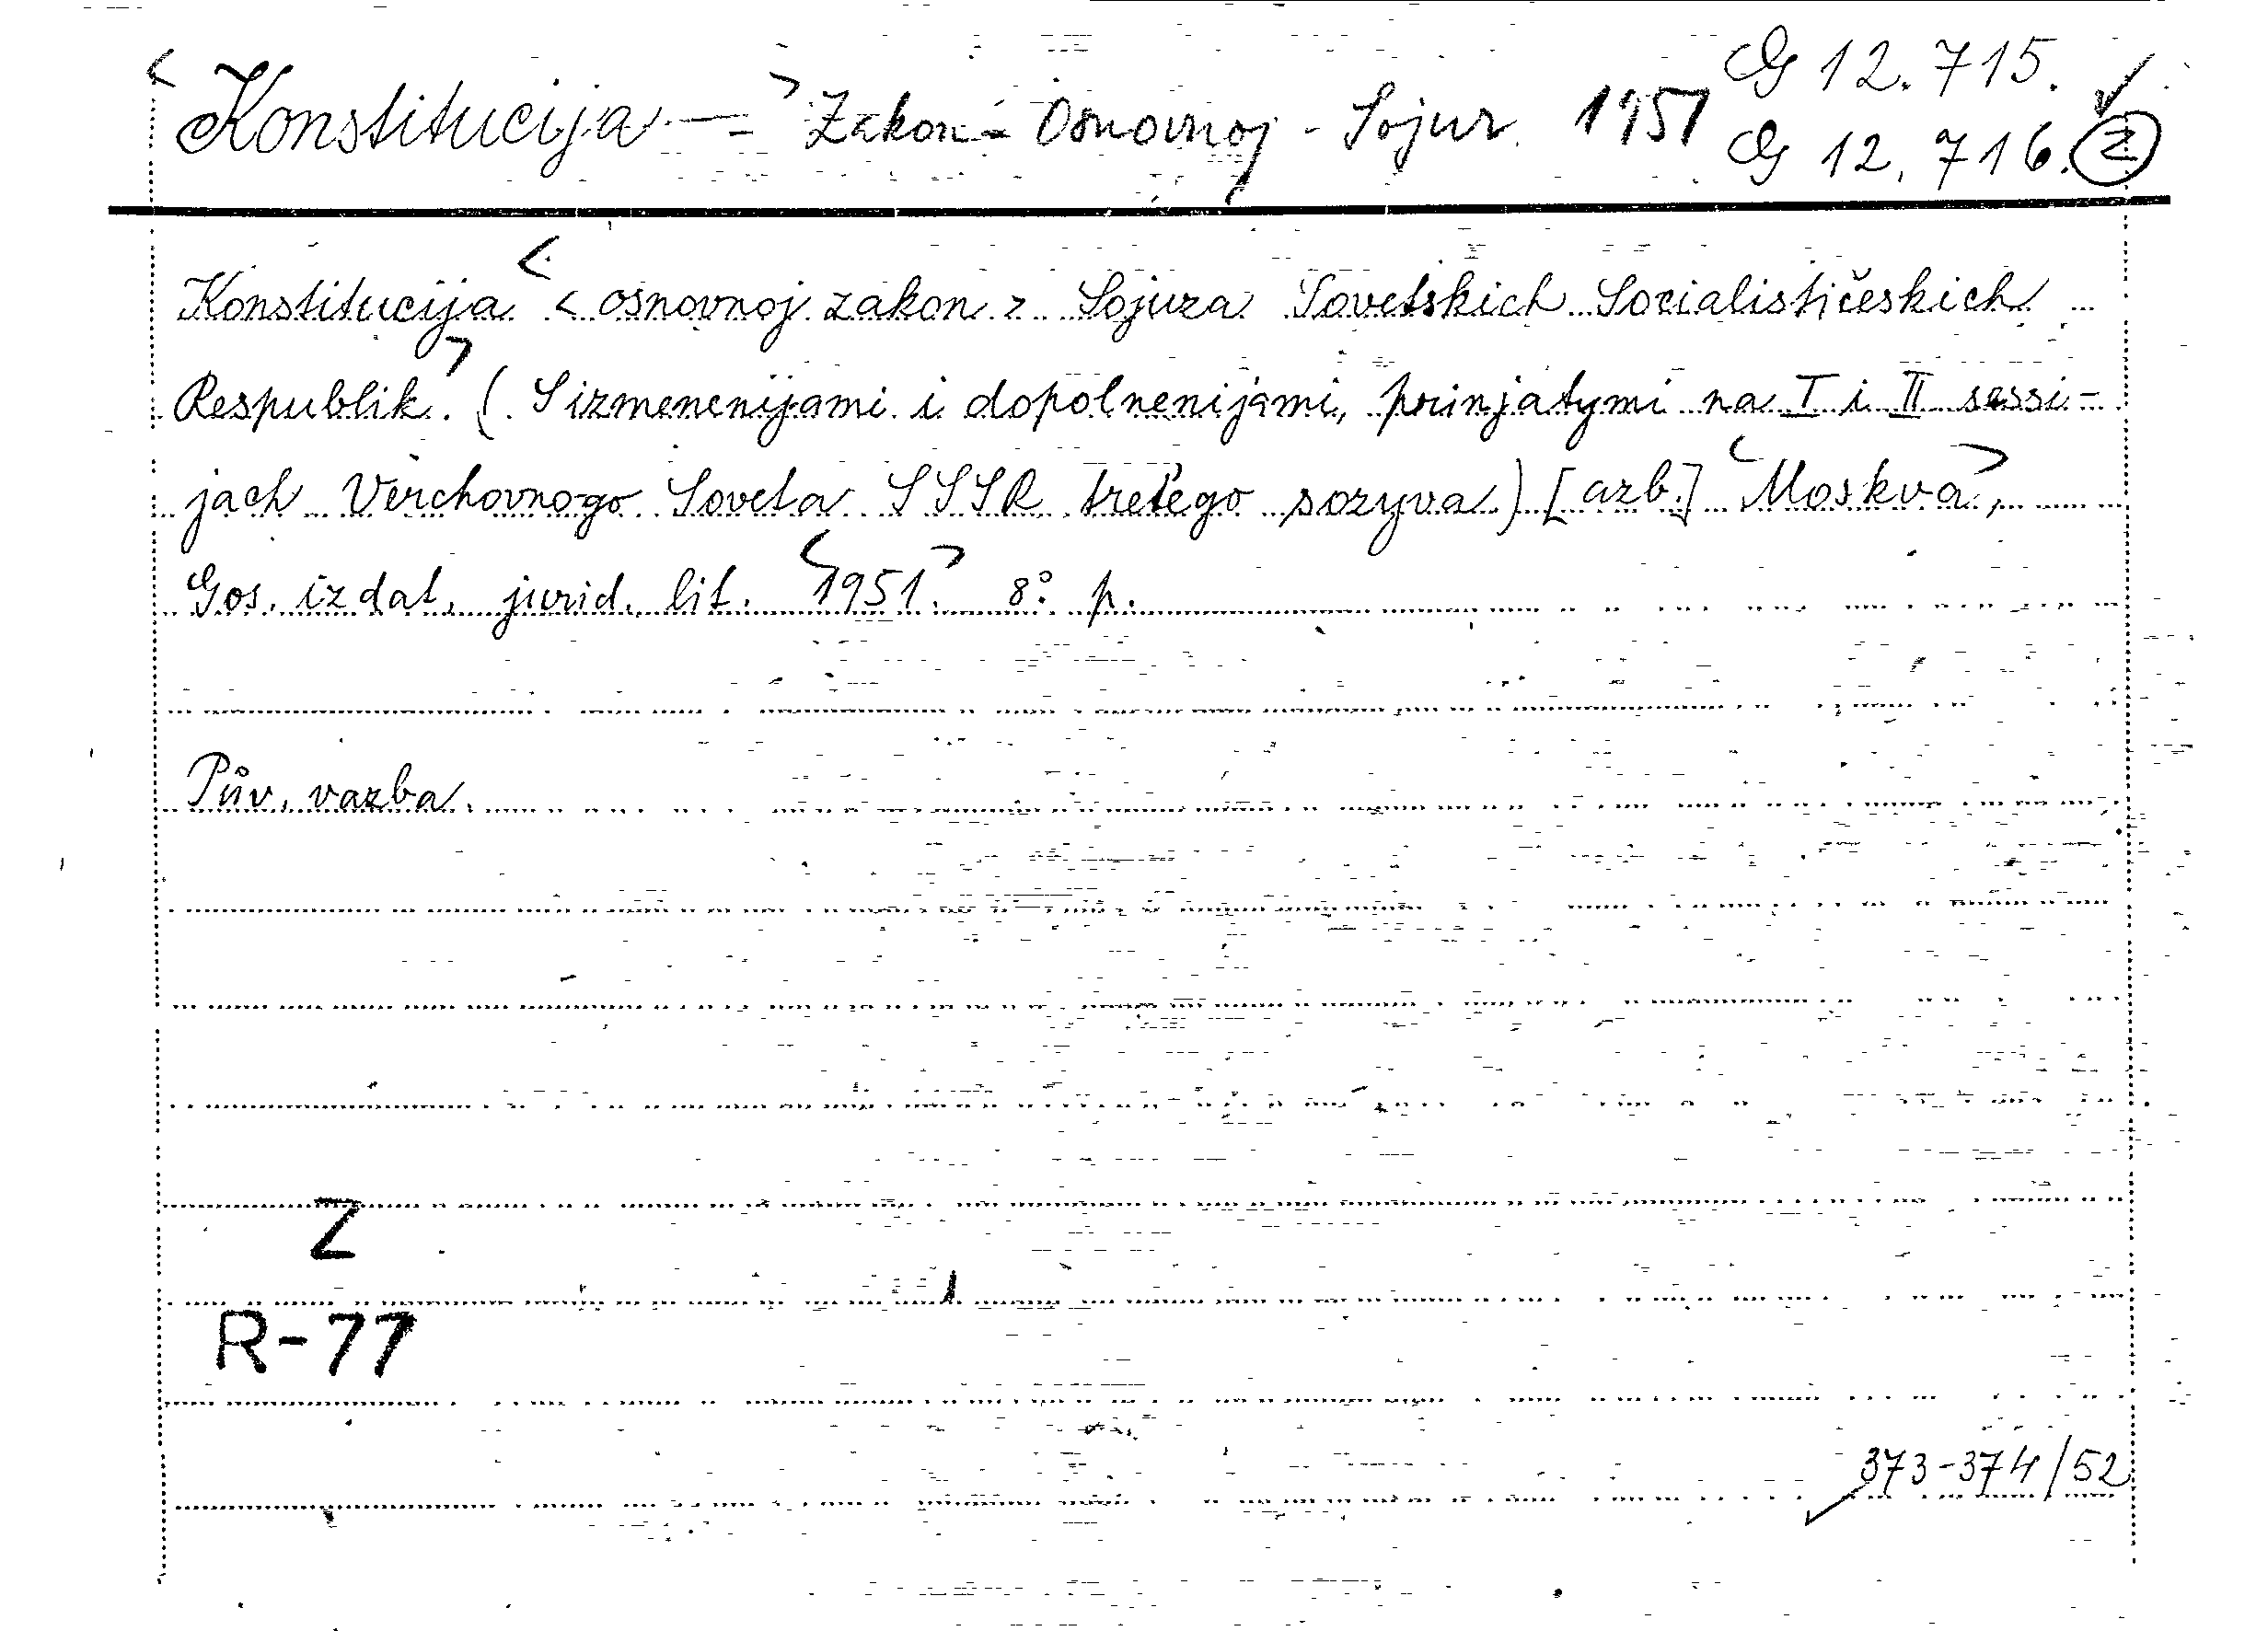 G 12.715.
<Konstitucija -> Zakon - Osnovnoj - Sojuz 1951
G 12.716. 2
Konstitucija < osnovnoj zakon > Sojuza Sovetskich Socialističeskich
Respublik. (S izmenenijami i dopolnenijami, prinjatymi na I i II sessi-
jach Verchovnogo Soveta SSSR tretego sozyva) [azb.] <Moskva>,
Gos. izdat. jurid. lit. <1951.> 8° p.
Pův. vazba.
Z
R-77
373-374/52